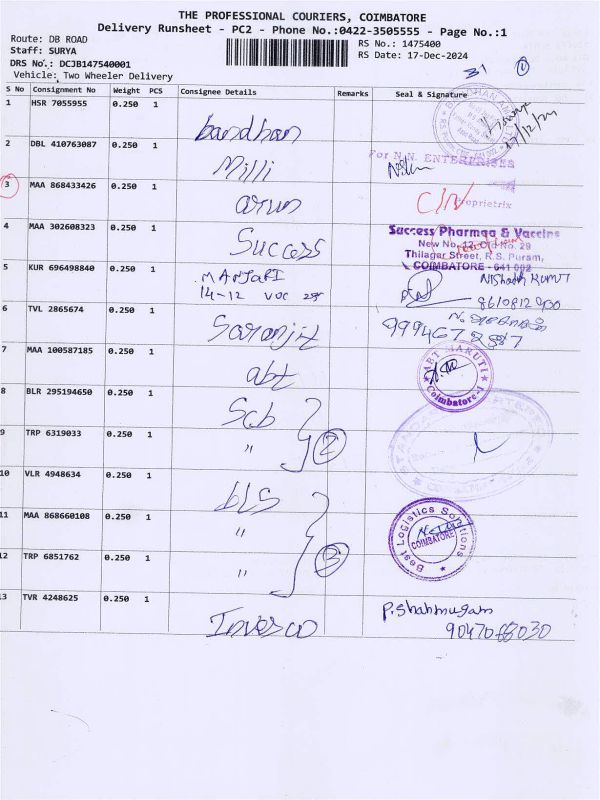 THE PROFESSIONAL COURIERS, COIMBATORE
Delivery Runsheet - PC2 - Phone No.:0422-3505555 - Page No.:1
Route: DB ROAD
Staff: SURYA
DRS No.: DCJB147540001
Vehicle: Two Wheeler Delivery
RS No.: 1475400
RS Date: 17-Dec-2024
31
S No Consignment No Weight PCS Consignee Details Remarks Seal & Signature
1 HSR 7055955 0.250 1 bandhan
17/12/24
2 DBL 410763087 0.250 1 Milli
For N.N. ENTERPRISES
3 MAA 868433426 0.250 1 arun
C/N Proprietrix
4 MAA 302608323 0.250 1 Success
Success Pharmaa & Vaccins
New No. 12, Old No. 29
Thilagar Street, R.S. Puram,
COIMBATORE - 641 002
5 KUR 696498840 0.250 1 MANJARI
14-12 VOC
6 TVL 2865674 0.250 1 Saranjit
7 MAA 100587185 0.250 1 abt
ABT MARUTI
Coimbatore-1
8 BLR 295194650 0.250 1 Scb
9 TRP 6319033 0.250 1 " 2
10 VLR 4948634 0.250 1 bLS
11 MAA 868660108 0.250 1 "
Best Logistics Solutions
COIMBATORE
12 TRP 6851762 0.250 1 " 3
13 TVR 4248625 0.250 1 Invesco
P. Shanmugam